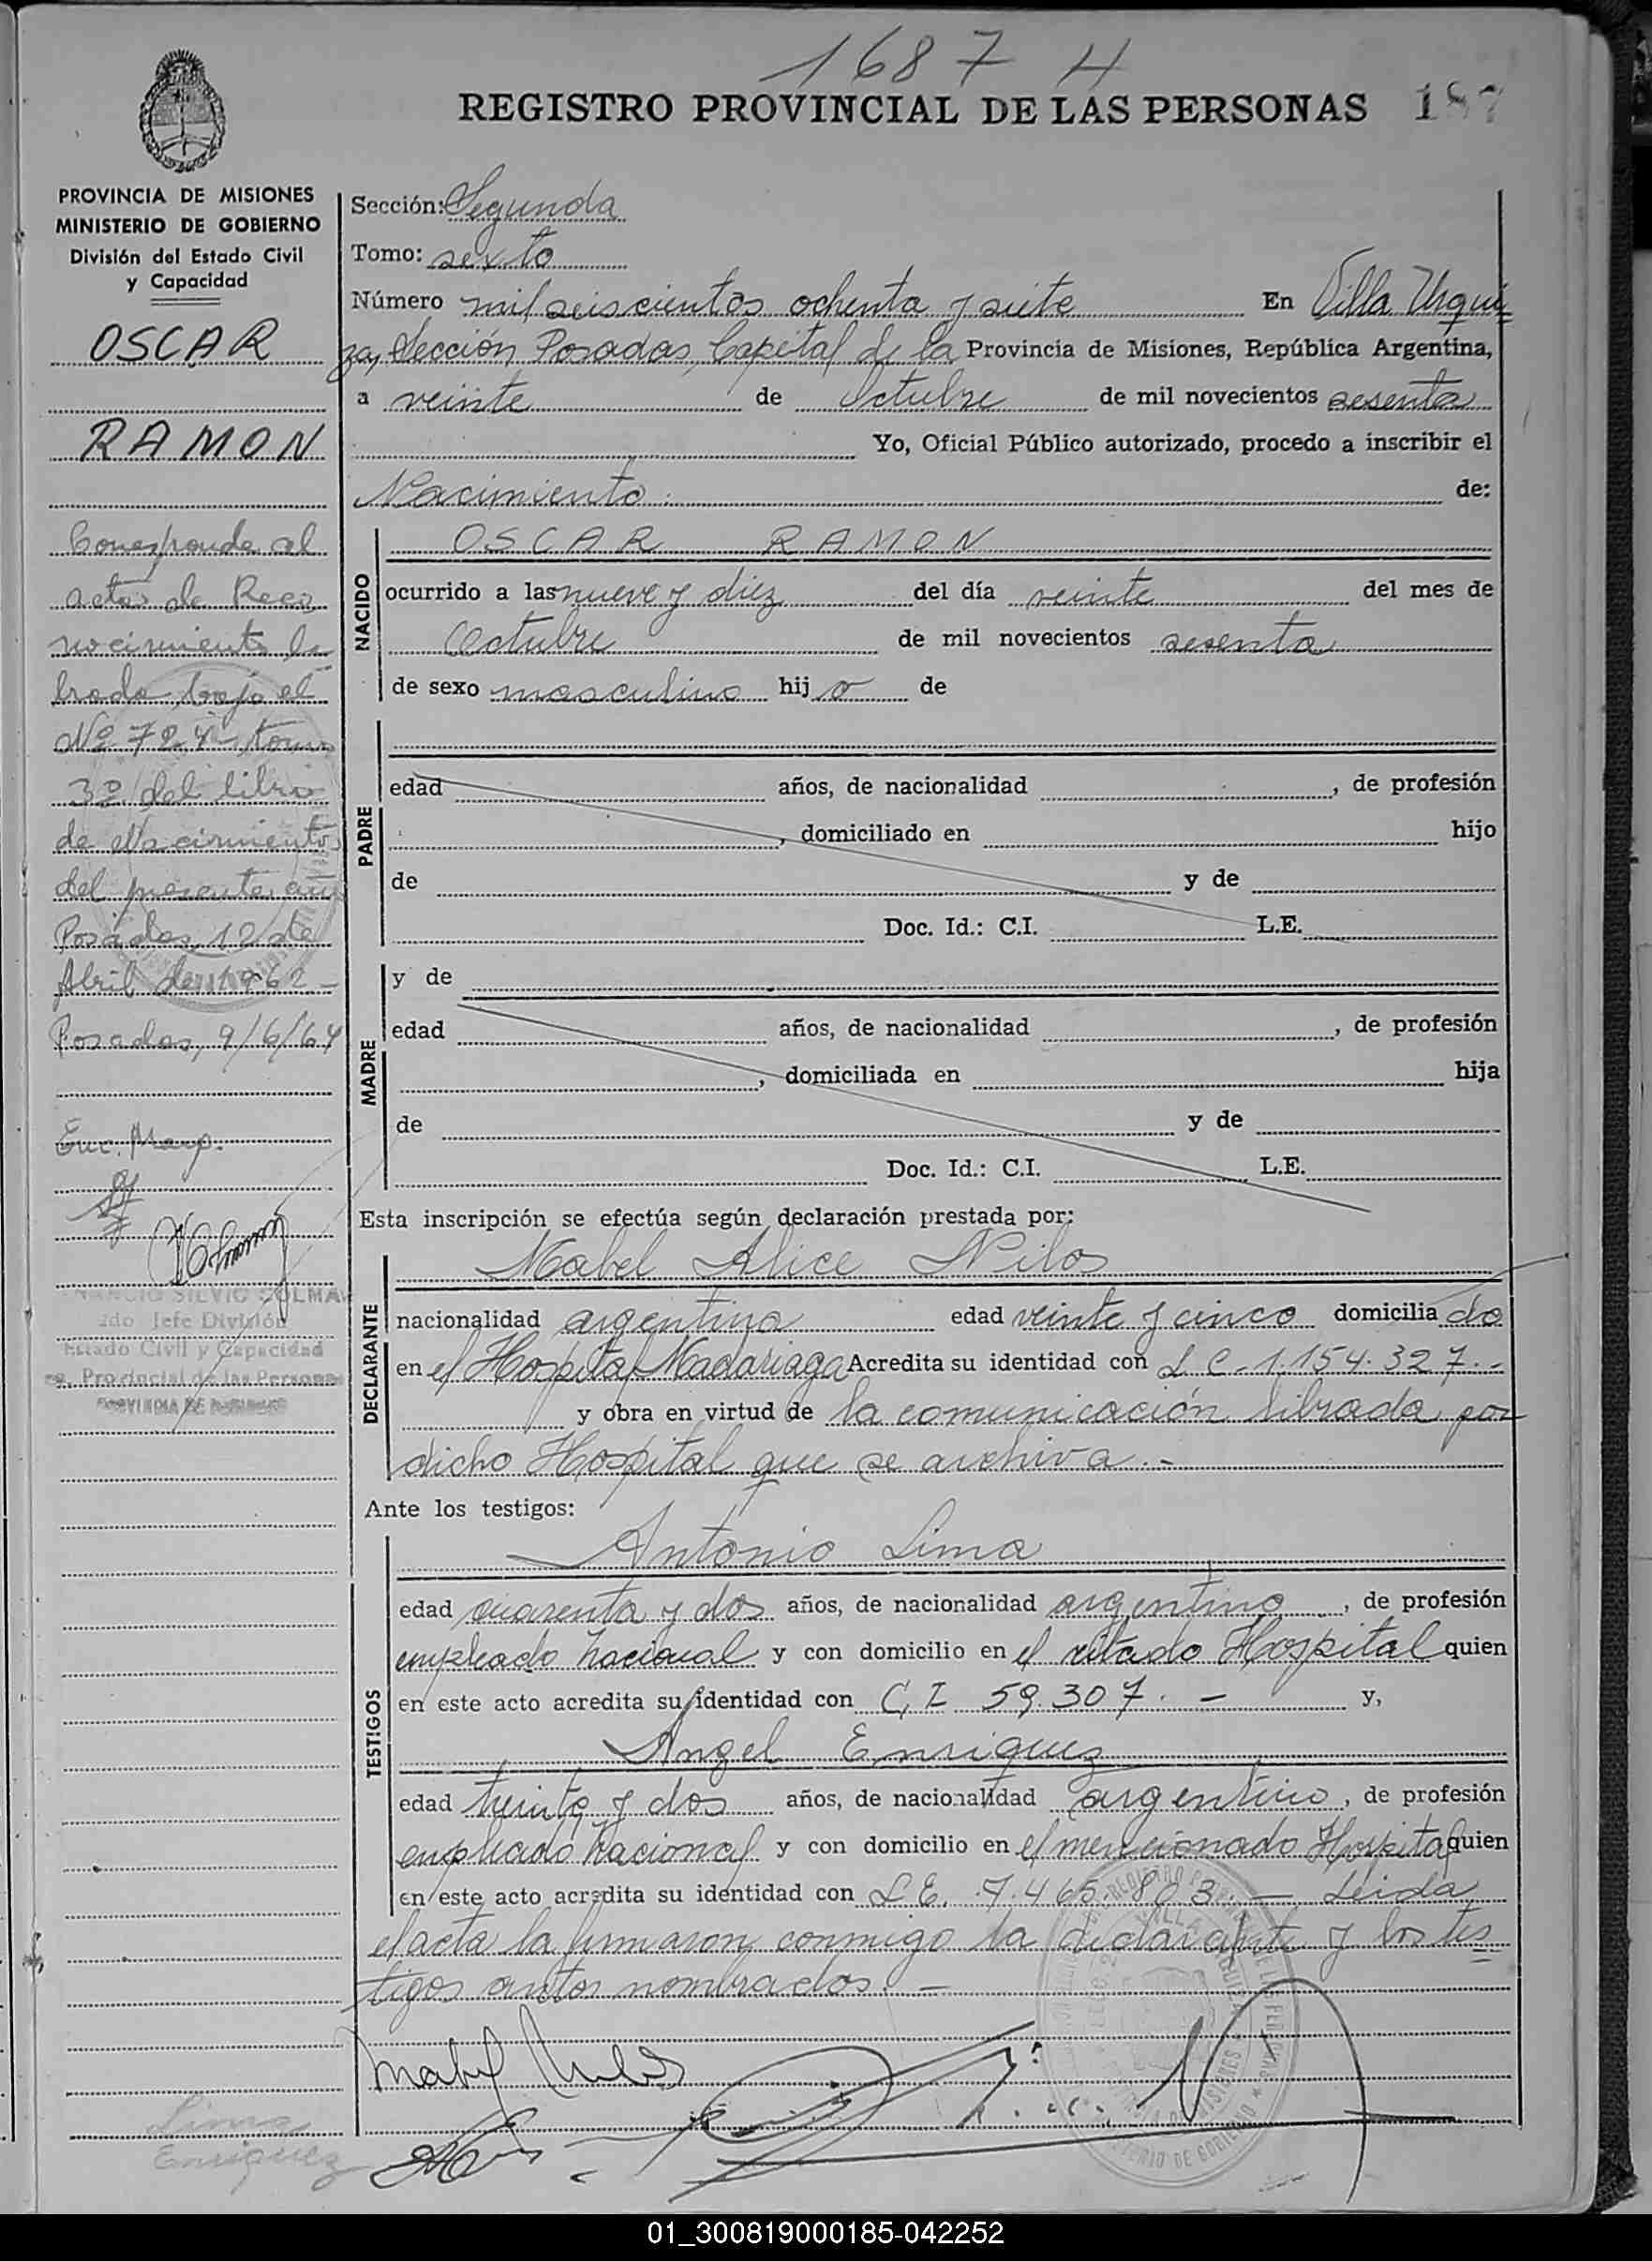 1687 H
REGISTRO PROVINCIAL DE LAS PERSONAS 187
PROVINCIA DE MISIONES
MINISTERIO DE GOBIERNO
División del Estado Civil
y Capacidad
OSCAR
RAMON
Corresponde al
acta de Reco
nocimiento la
brada bajo el
Nº 724 tomo
3º del libro
de Nacimientos
del presente año
Posadas, 12 de
Abril de 1962 -
Posadas, 9/6/64
Enc. Marg.
SILVIO COLMA
2do Jefe División
Estado Civil y Capacidad
Provincial de las Personas
PROVINCIA DE MISIONES
Lima
Enriquez
Sección: Segunda
Tomo: sexto
Número mil seiscientos ochenta y siete En Villa Urqui
za, Sección Posadas, Capital de la Provincia de Misiones, República Argentina,
a veinte de Octubre de mil novecientos sesenta
Yo, Oficial Público autorizado, procedo a inscribir el
Nacimiento de:
NACIDO
OSCAR RAMON
ocurrido a las nueve y diez del día veinte del mes de
Octubre de mil novecientos sesenta
de sexo masculino hijo de
PADRE
edad años, de nacionalidad , de profesión
, domiciliado en hijo
de y de
Doc. Id.: C.I. L.E.
MADRE
y de
edad años, de nacionalidad , de profesión
, domiciliada en hija
de y de
Doc. Id.: C.I. L.E.
Esta inscripción se efectúa según declaración prestada por:
DECLARANTE
Mabel Alice Nilos
nacionalidad argentina edad veinte y cinco domiciliado
en el Hospital Madariaga Acredita su identidad con L C 1.154.327.-
y obra en virtud de la comunicación librada por
dicho Hospital que se archiva.-
Ante los testigos:
TESTIGOS
Antonio Lima
edad cuarenta y dos años, de nacionalidad argentino, de profesión
empleado nacional y con domicilio en el citado Hospital quien
en este acto acredita su identidad con C, I 59.307. - y,
Angel Enriquez
edad treinta y dos años, de nacionalidad argentino, de profesión
empleado nacional y con domicilio en el mencionado Hospital quien
en este acto acredita su identidad con L.E. 7.465.803. - Leida
el acta la firmaron conmigo la declarante y los tes
tigos antes nombrados. -
01_300819000185-042252